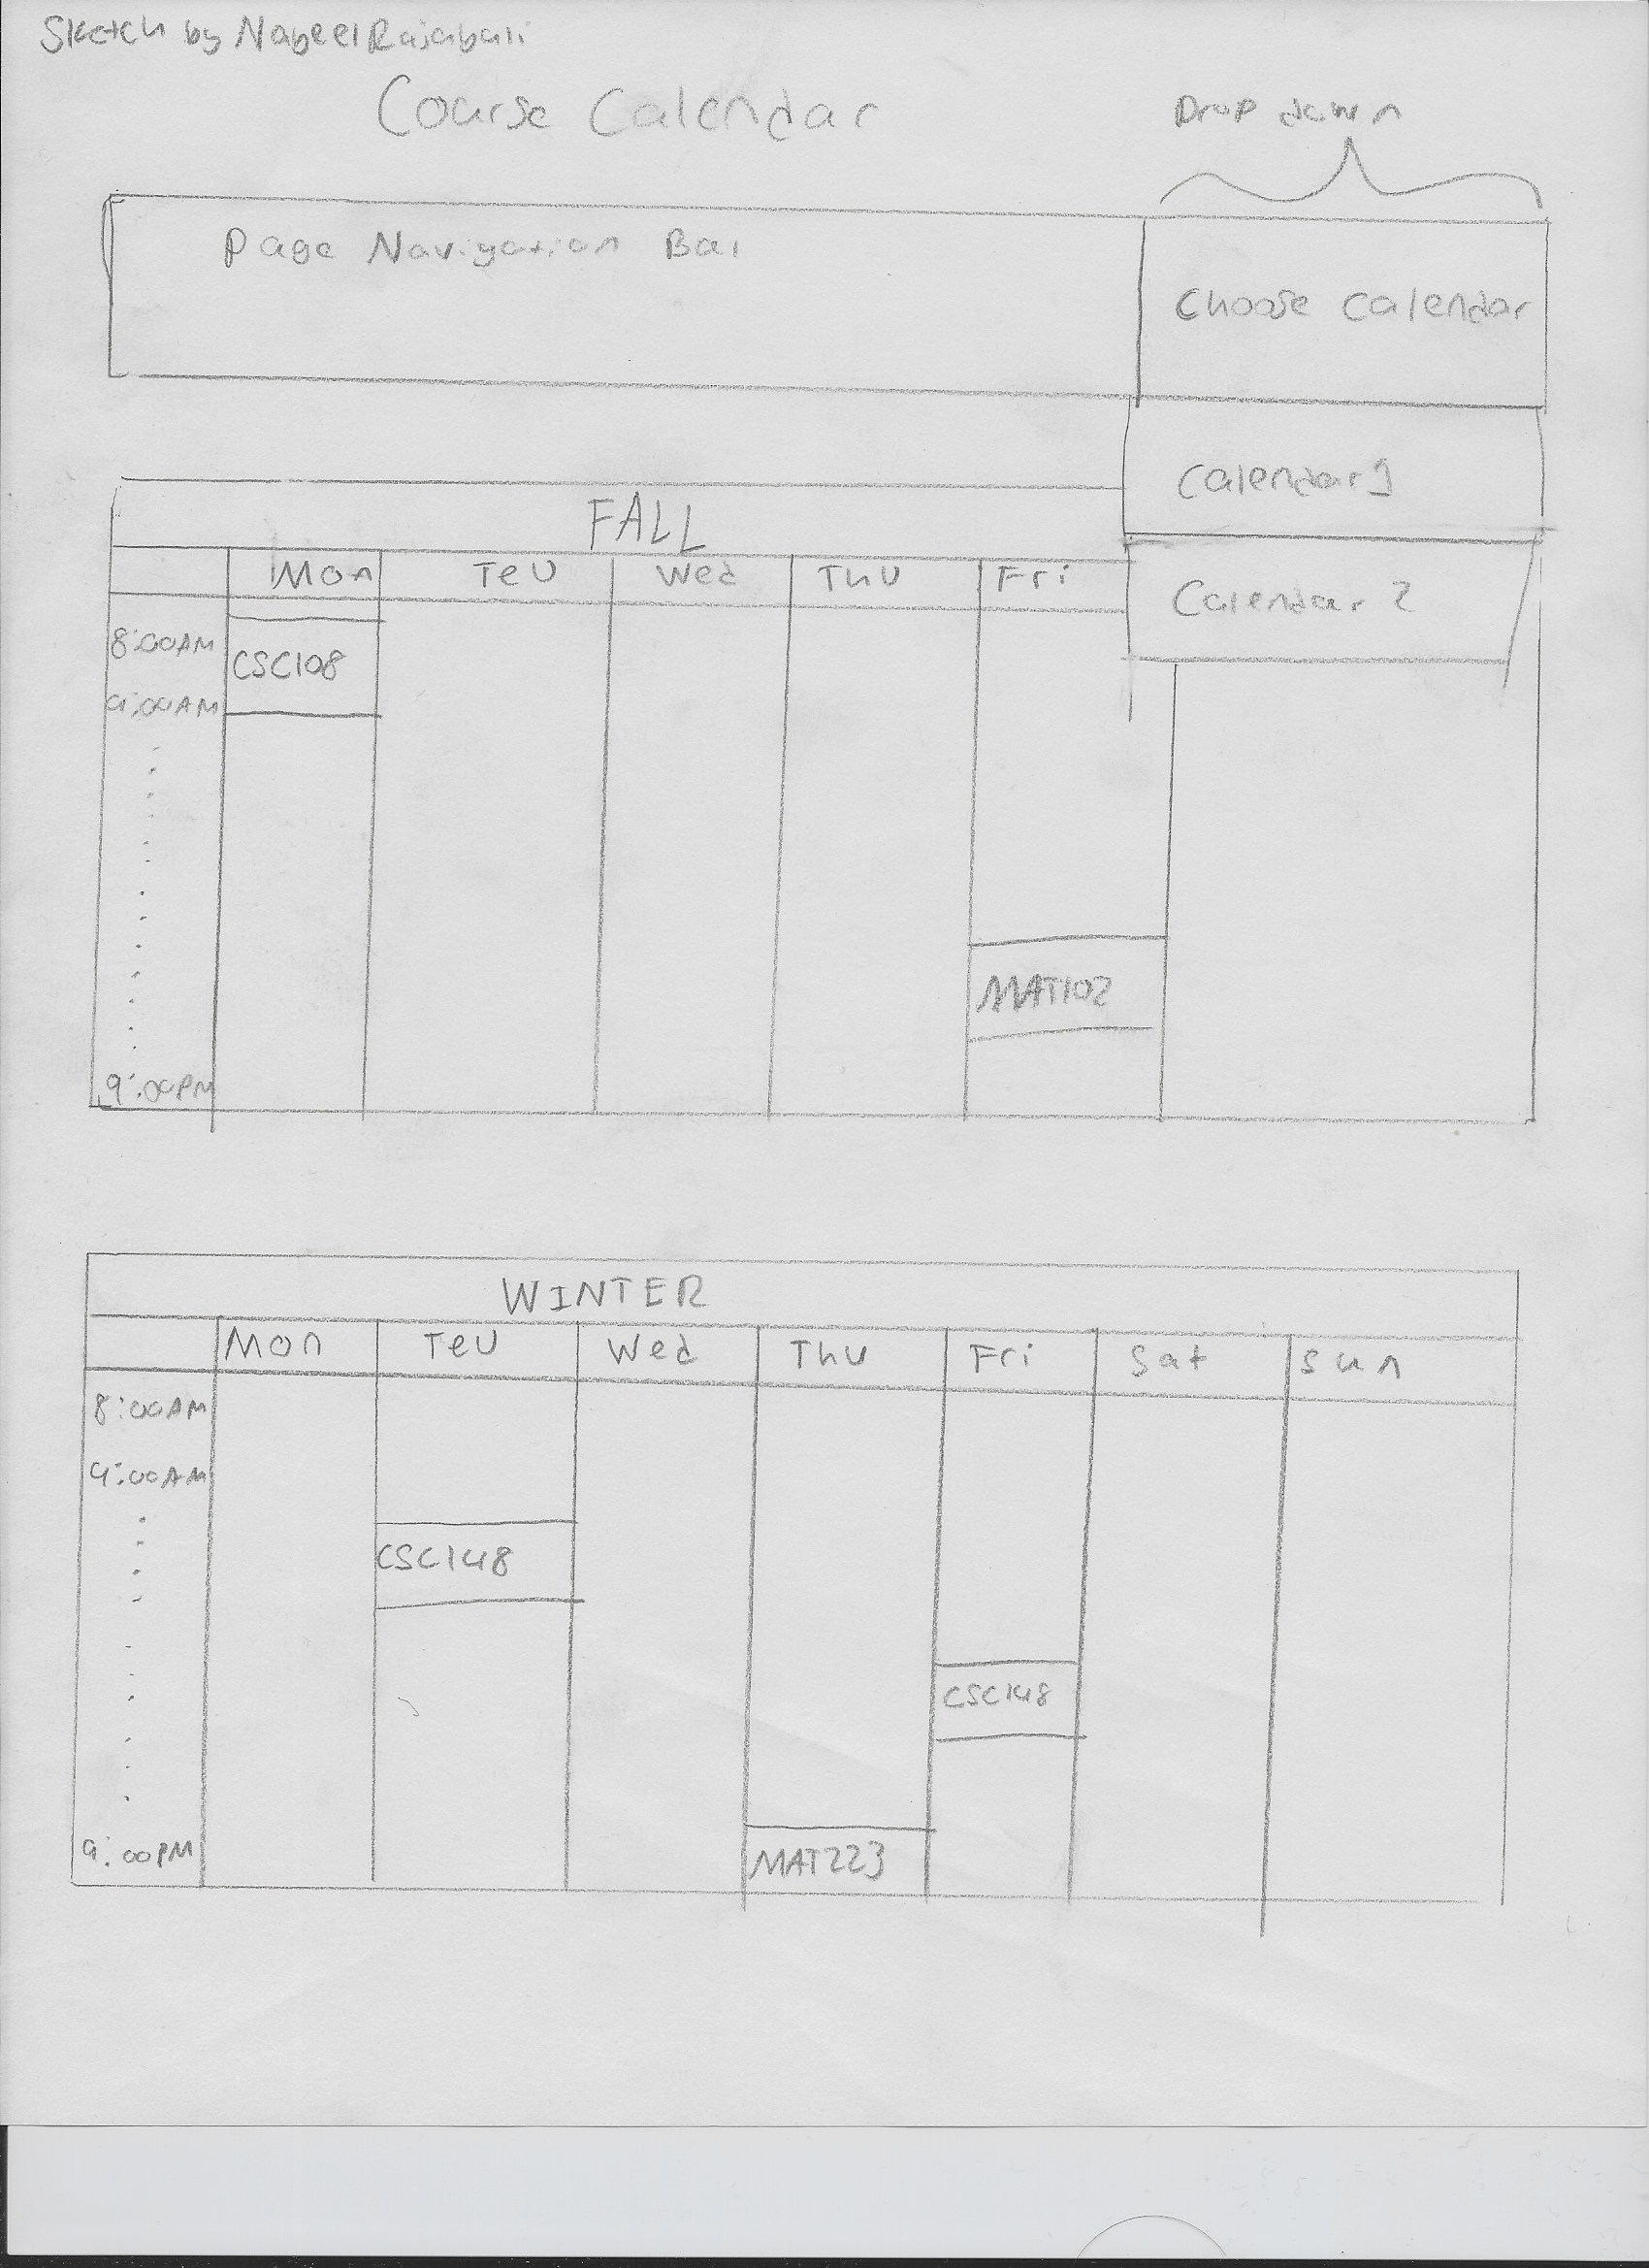 Sketch by Nabeel Rajabali
Course Calendar
Drop down
Page Navigation Bar
Choose Calendar
Calendar 1
Calendar 2
FALL
Mon Teu Wed Thu Fri
8:00AM CSC108
9:00AM
MAT102
9:00PM
WINTER
Mon Teu Wed Thu Fri Sat Sun
8:00AM
9:00AM
CSC148
CSC148
9:00PM MAT223